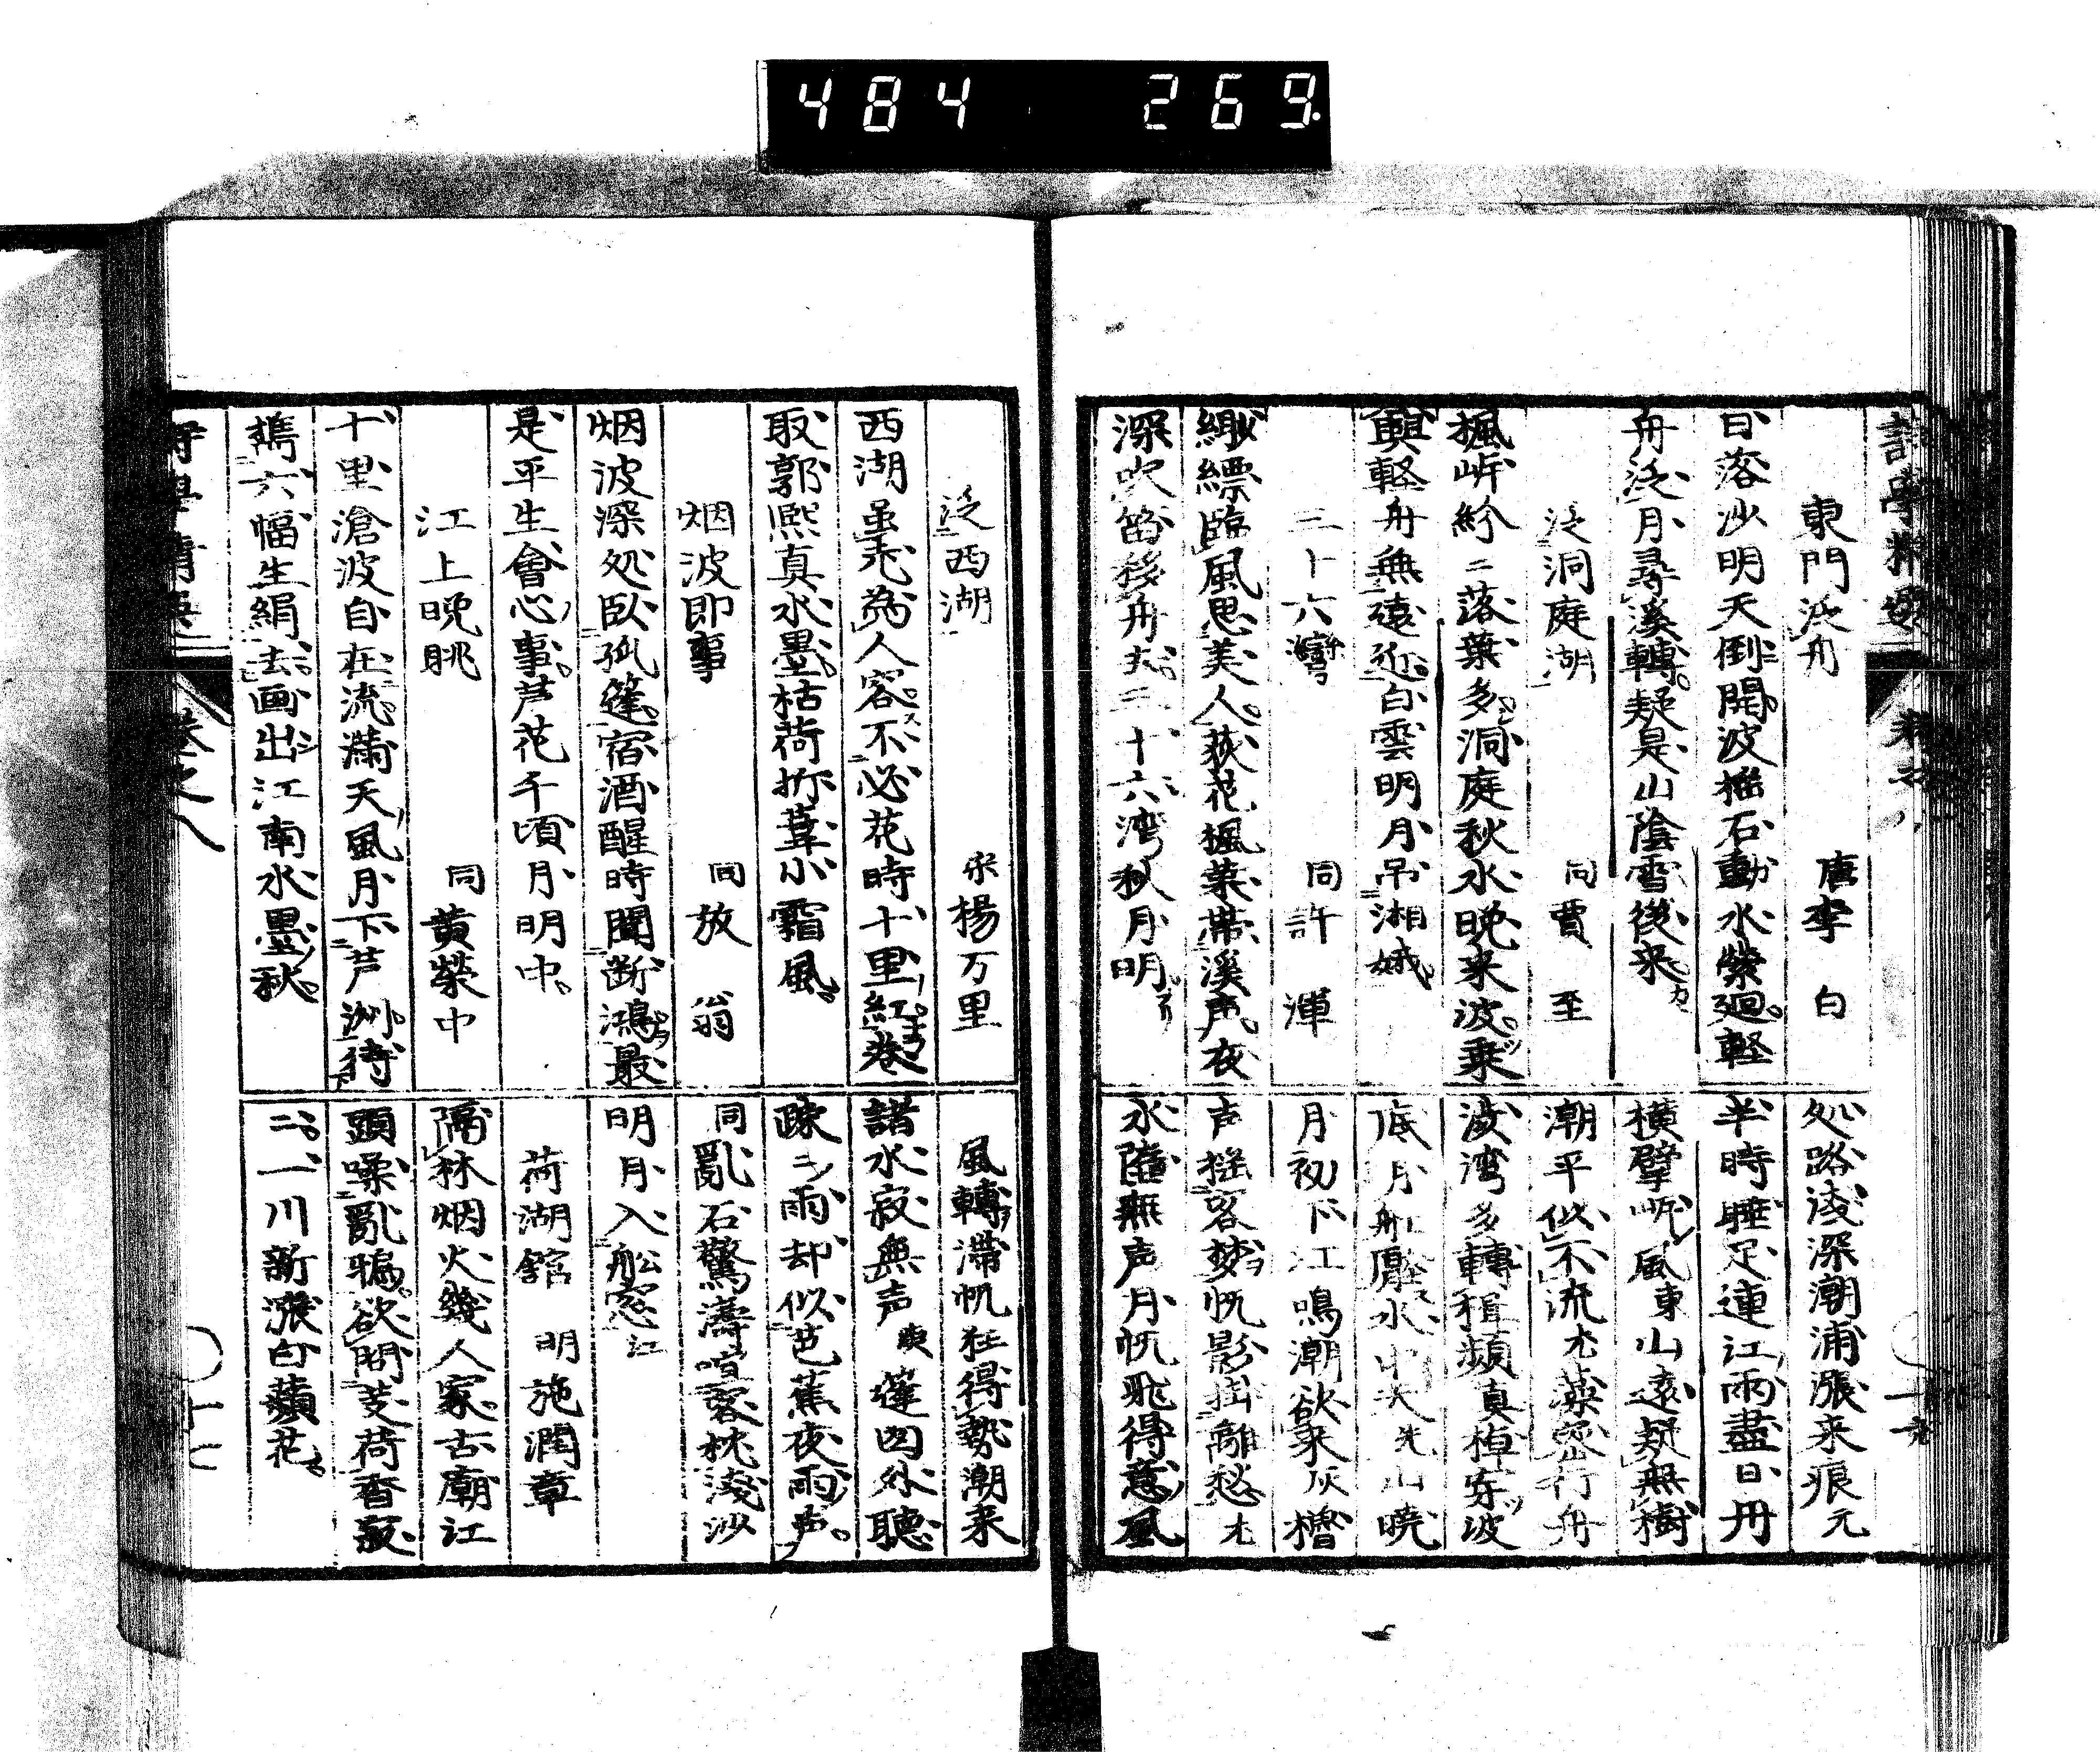 484 269.
東門泛舟 唐李白
日落沙明天倒開波搖石動水縈廻軽
舟泛月尋溪轉疑是山陰雪後来
泛洞庭湖 同賈至
楓岸紛々落葉多洞庭秋水晩来波乗
興軽舟無遠近白雲明月吊湘娥
三十六灣 同許渾
縹緲臨風思美人荻花楓葉帯溪声夜
深吹笛移舟去三十六湾秋月明
処路淩深潮浦漲来痕元
半時睡足連江雨盡日舟
横擘岸風東山遠疑無樹
潮平似不流 行舟
湾多轉楫蘋真棹穿波
底月船壓水中天 山曉
月初下江鳴潮欲来 櫓
声揺客夢帆影掛離愁
水隂無声月帆飛得意風
泛西湖 宋楊万里
西湖虽老為人容不必花時十里紅巻
取郭熈真水墨枯荷折葦小霜風
烟波即事 同放翁
烟波深処臥孤篷宿酒醒時聞断鴻最
是平生會心事芦花千頃月明中
江上晩眺 同黄榮中
十里滄波自在流満天風月下芦洲待
雋六幅生絹去画出江南水墨秋
風轉滞帆狂得勢潮来
諸水寂無声 篷囱外聴
踈々雨却似芭蕉夜雨声
同亂石驚濤喧客枕淺沙
明月入舩窓江
荷湖舘 明施潤章
隔林烟火幾人家古廟江
頭噪亂鴉欲問芰荷香寂
二一川新漲白蘋花
巻之八